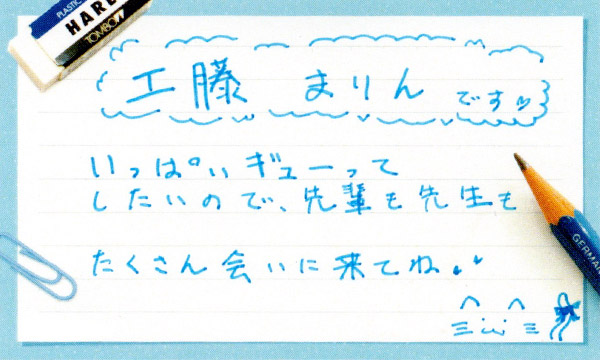 PLASTIC
HARD
TOMBOW
工藤 まりん です♡
いっぱいギューって
したいので、先輩も先生も
たくさん会いに来てね♪
GERMANY